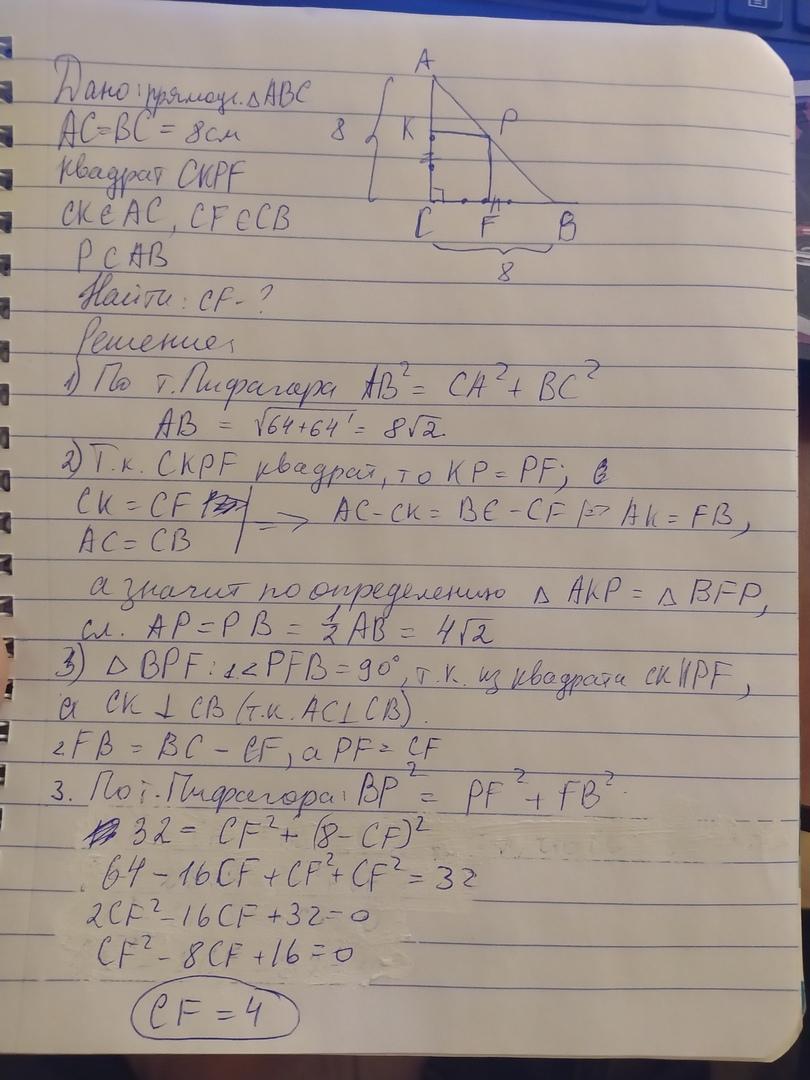 Дано: прямоуг. △ABC
AC=BC = 8см
квадрат CKPF
CK∈AC, CF∈CB
P⊂AB
Найти: CF-?
A
8
K
P
C
F
B
8
Решение:
1) По т.Пифагора AB² = CA² + BC²
AB = √64+64 = 8√2.
2) Т.к. CKPF квадрат, то KP = PF;
CK = CF
AC = CB
=> AC-CK = BC-CF => AK = FB,
а значит по определению △ AKP = △ BFP,
сл. AP = PB = 1/2 AB = 4√2
3) △ BPF: 1.∠PFB = 90°, т.к. из квадрата CK||PF,
а CK ⊥ CB (т.к. AC⊥CB).
2.FB = BC - CF, а PF = CF
3. По т.Пифагора: BP² = PF² + FB².
32 = CF² + (8-CF)²
64 - 16CF + CF² + CF² = 32
2CF² - 16CF + 32 = 0
CF² - 8CF + 16 = 0
CF = 4